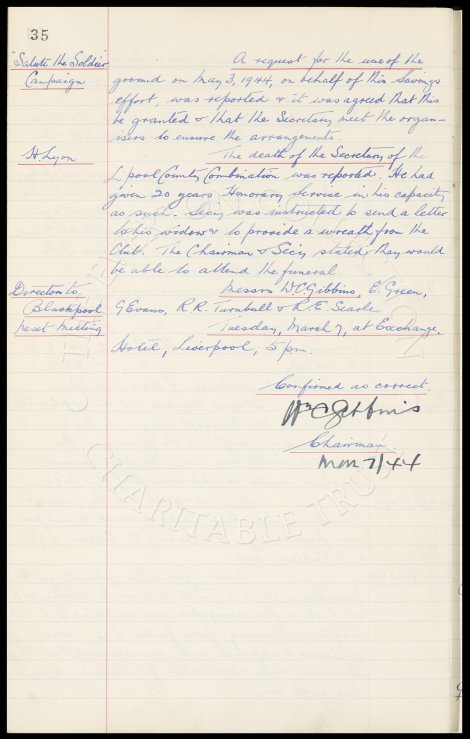 35
"Salute the Soldier" A request for the use of the
Campaign ground on May 3, 1944, on behalf of this Savings
effort, was reported & it was agreed that this
be granted & that the Secretary meet the organ-
isers to ensure the arrangements.
H Lyon The death of the Secretary of the
L'pool County Combination was reported. He had
given 20 years Honorary service in his capacity
as such. Secy was instructed to send a letter
to his widow & to provide a wreath from the
Club. The Chairman & Secy stated they would
be able to attend the funeral
Directors to Messrs W.C. Gibbins, E. Green,
Blackpool. G Evans, R.R. Turnbull & R.E. Searle.
next meeting Tuesday, March 7, at Exchange,
Hotel, Liverpool, 5 pm.
Confirmed as correct.
Wm C Gibbins
Chairman
Mar 7/44
CHARITABLE TRUST